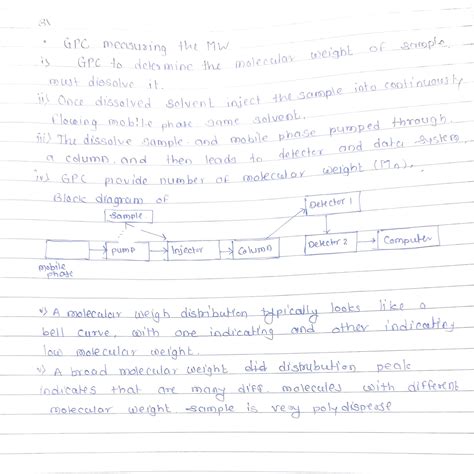 • GPC measuring the MW
i) GPC to determine the molecular weight of sample
must dissolve it.
ii) Once dissolved solvent inject the sample into continuously
flowing mobile phase same solvent.
iii) The dissolve sample and mobile phase pumped through
a column and then leads to detector and data system.
iv) GPC provide number of molecular weight (Mn).
Block diagram of
Sample
Detector 1
pump
Injector
Column
Detector 2
Computer
mobile
phase
v) A molecular weigh distribution typically looks like a
bell curve, with one indicating and other indicating
low molecular weight.
v) A broad molecular weight did distribution peak
indicates that are many diff. molecules with different
molecular weight sample is very polydisperse